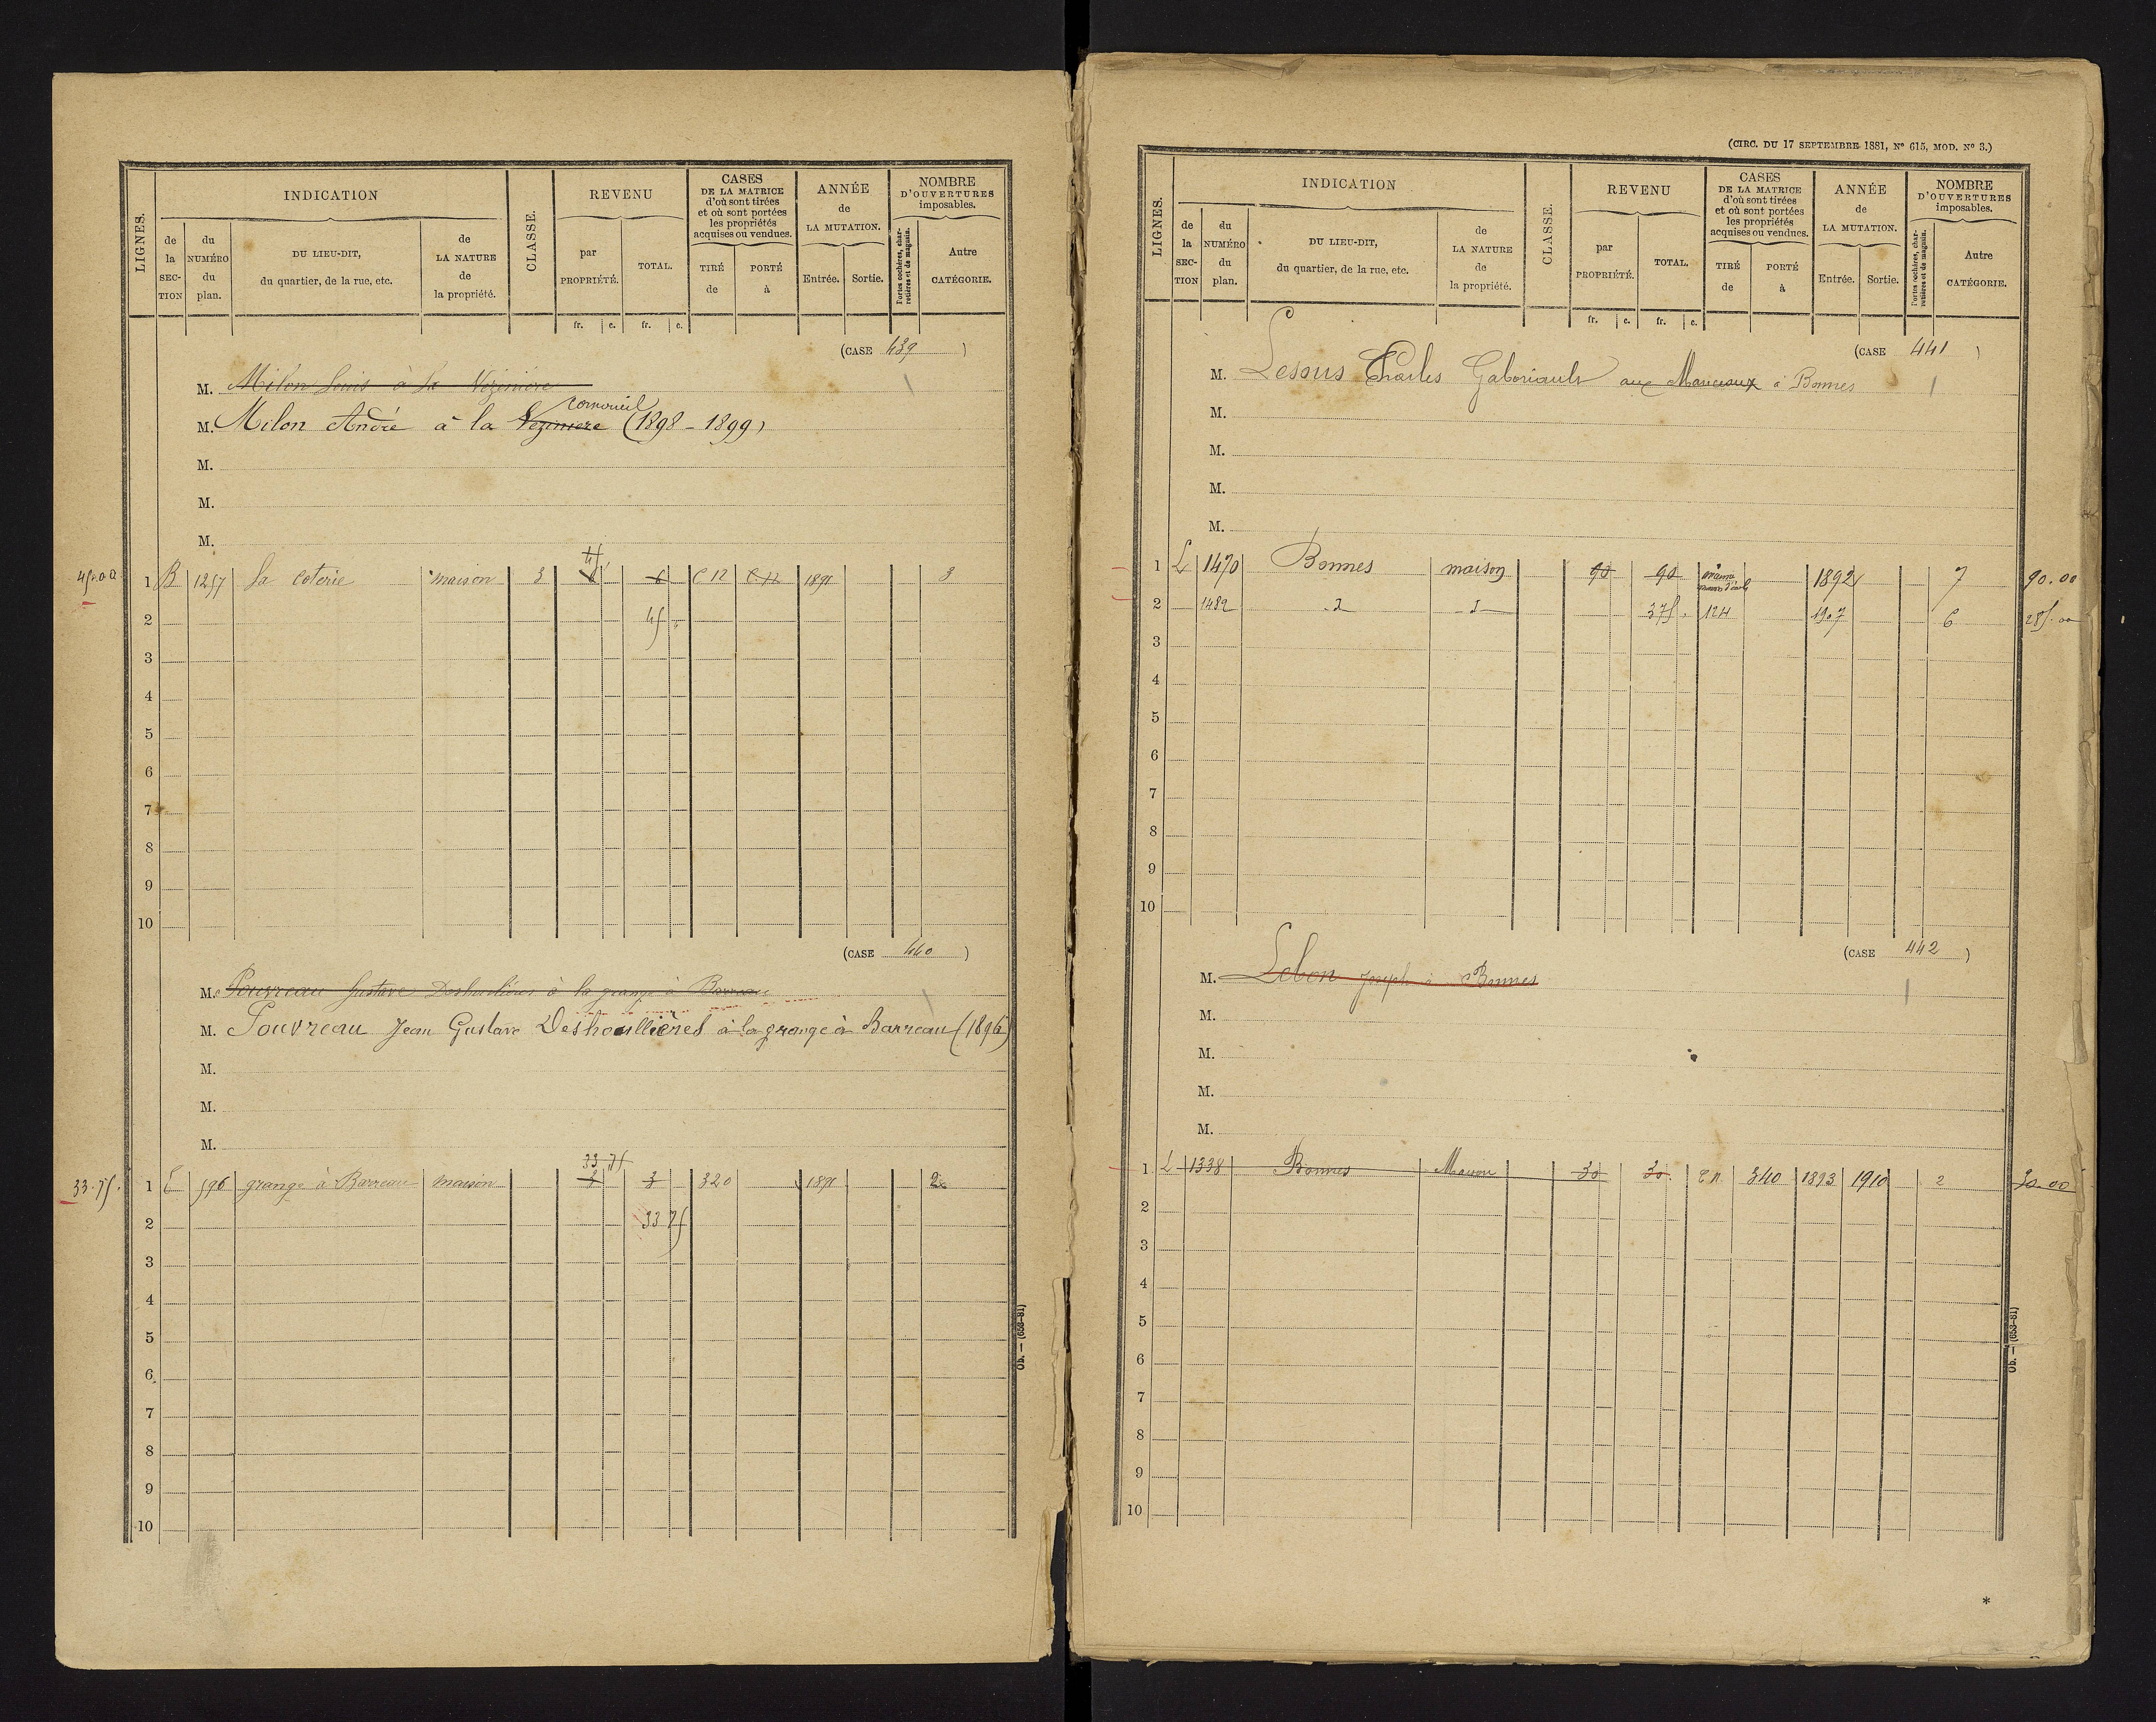 LIGNES.
INDICATION
de la SECTION
du NUMÉRO du plan.
DU LIEU-DIT, du quartier, de la rue, etc.
de LA NATURE de la propriété.
CLASSE.
REVENU
par PROPRIÉTÉ.
TOTAL.
CASES DE LA MATRICE d'où sont tirées et où sont portées les propriétés acquises ou vendues.
TIRÉ de
PORTÉ à
ANNÉE de LA MUTATION.
Entrée.
Sortie.
NOMBRE D'OUVERTURES imposables.
Portes cochères, charretières et de magasin.
Autre CATÉGORIE.
fr. c. fr. c.
(CASE 439 )
M. Milon Louis à la Vezinière
cornoueil
M. Milon André à la Vezinière (1898 - 1899)
M.
M.
M.
45
45.00 1 B 1257 la coterie maison 3 6 6 C 12 C 12 1891 3
2 45
3
4
5
6
7
8
9
10
(CASE 440 )
M. Pouvreau Gustave Deshoulières à la grange à Barreau
M. Pouvreau Jean Gustave Deshoullières à la grange à Barreau (1896)
M.
M.
M.
33 75
33.75. 1 E 596 grange à Barreau maison 3 3 320 1891 2
2 33 75
3
4
5
6
7
8
9
10
Ob. — (653-81)
(CIRC. DU 17 SEPTEMBRE 1881, N° 615, MOD. N° 3.)
LIGNES.
INDICATION
de la SECTION
du NUMÉRO du plan.
DU LIEU-DIT, du quartier, de la rue, etc.
de LA NATURE de la propriété.
CLASSE.
REVENU
par PROPRIÉTÉ.
TOTAL.
CASES DE LA MATRICE d'où sont tirées et où sont portées les propriétés acquises ou vendues.
TIRÉ de
PORTÉ à
ANNÉE de LA MUTATION.
Entrée.
Sortie.
NOMBRE D'OUVERTURES imposables.
Portes cochères, charretières et de magasin.
Autre CATÉGORIE.
fr. c. fr. c.
(CASE 441 )
M. Lesous Charles Gaboriault aux Manceaux à Bonnes
M.
M.
M.
M.
1 L 1470 Bonnes maison 90 90 1892 7 90.00
2 1482 d d 375 124 1907 6 285.00
3
4
5
6
7
8
9
10
(CASE 442 )
M. Lebon Joseph à Bonnes
M.
M.
M.
M.
1 L 1338 Bonnes Maison 30 30 340 1893 1910 2 30.00
2
3
4
5
6
7
8
9
10
Ob. — (653-81)
*